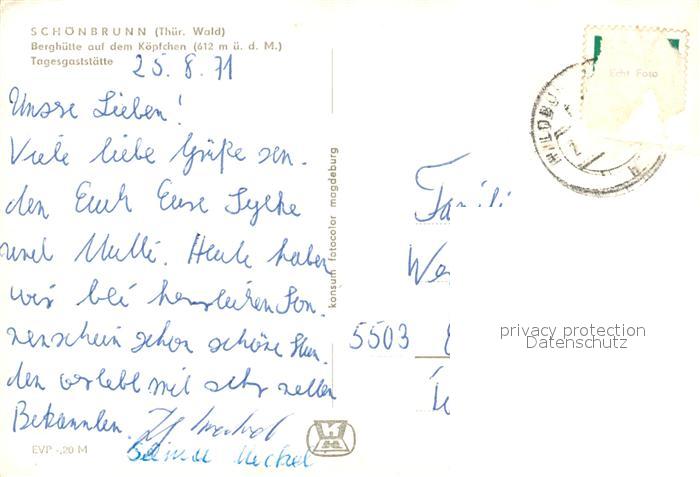 SCHÖNBRUNN (Thür. Wald)
Berghütte auf dem Köpfchen (612 m ü. d. M.)
Tagesgaststätte
25. 8. 71
Unsre Lieben!
Viele liebe Grüße sen-
den Euch Eure Sylke
und Mutti. Heute haben
wir bei herrlichen Son-
nenschein schon schöne Stun-
den verlebt mit sehr netten
Bekannten.
EVP -,20 M
konsum fotocolor magdeburg
Echt Foto
Famili
We
5503
privacy protection
Datenschutz